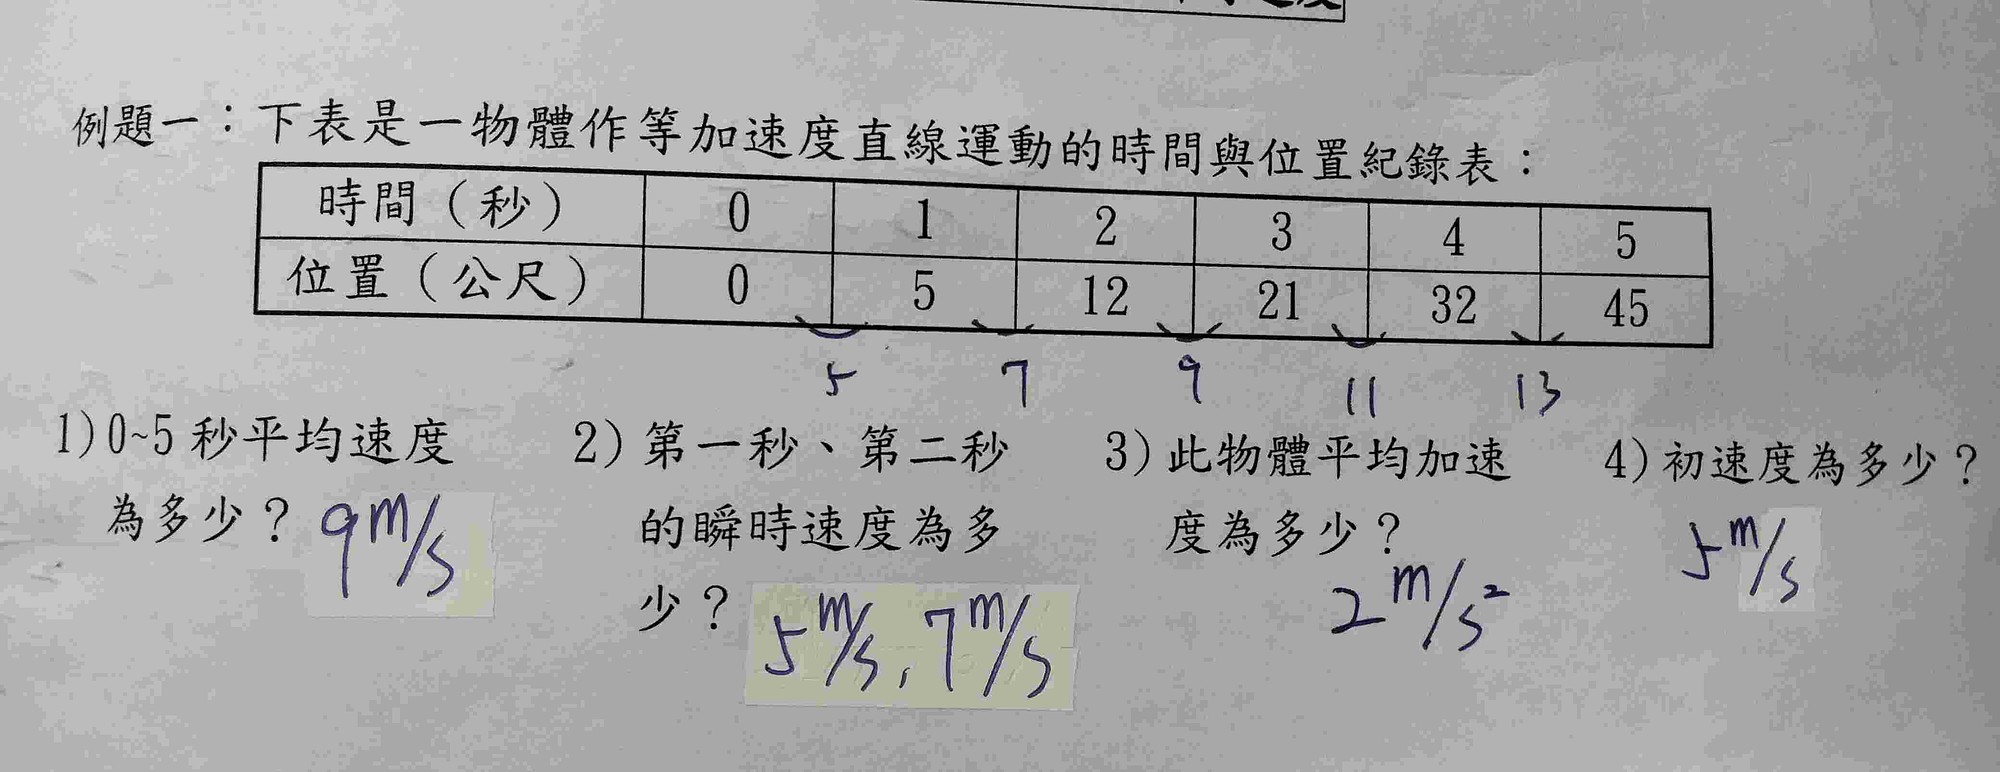 例題一：下表是一物體作等加速度直線運動的時間與位置紀錄表：
時間（秒） 0 1 2 3 4 5
位置（公尺） 0 5 12 21 32 45
5 7 9 11 13
1)0~5秒平均速度
為多少？ 9 m/s
2)第一秒、第二秒
的瞬時速度為多
少？ 5 m/s, 7 m/s
3)此物體平均加速
度為多少？
2 m/s²
4)初速度為多少？
5 m/s